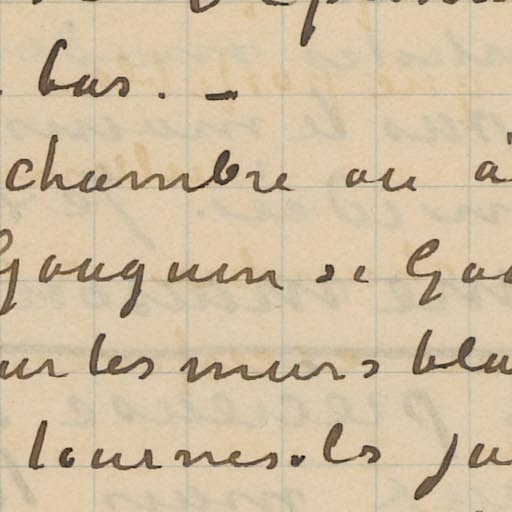 bas. —
chambre ou à
Gauguin si Gau
ur les murs blan
tournesols jau